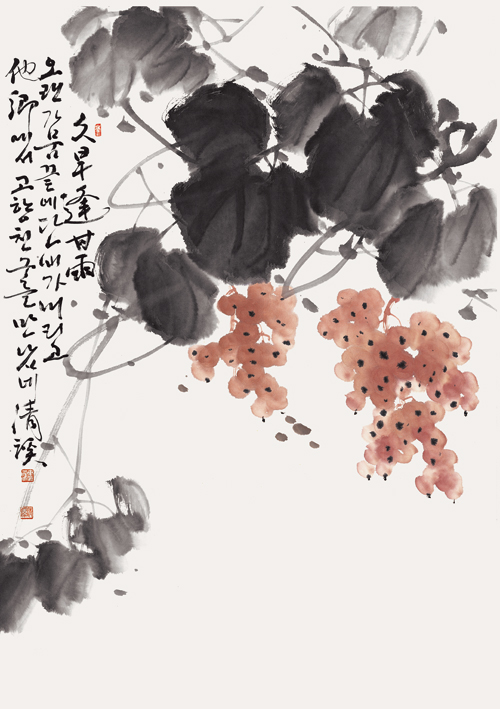 久旱逢甘雨
오랜 가뭄 끝에 단비가 내리고
他鄕에서 고향 친구를 만났네 清